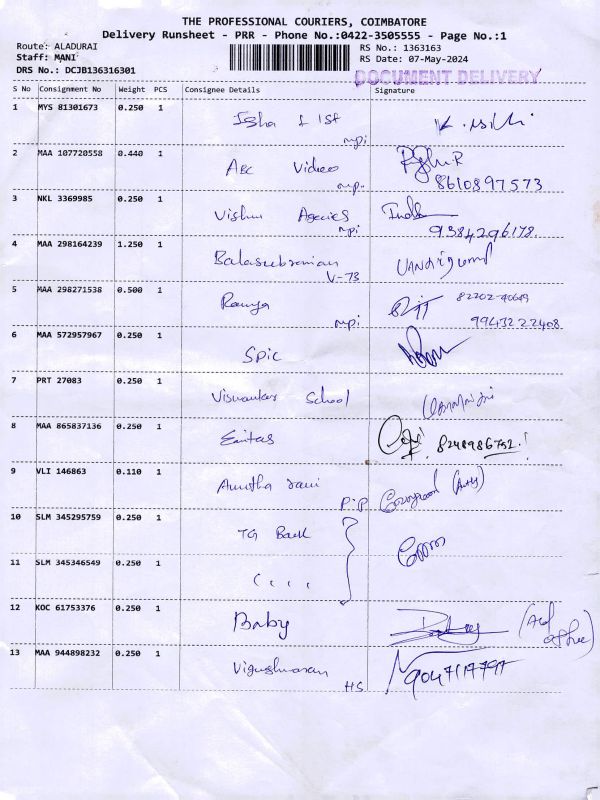 THE PROFESSIONAL COURIERS, COIMBATORE
Delivery Runsheet - PRR - Phone No.:0422-3505555 - Page No.:1
Route: ALADURAI RS No.: 1363163
Staff: MANI RS Date: 07-May-2024
DRS No.: DCJB136316301
DOCUMENT DELIVERY
S No Consignment No Weight PCS Consignee Details Signature
1 MYS 81301673 0.250 1 Isha
mpi
2 MAA 107720558 0.440 1 ABC Video
mp. 8610897573
3 NKL 3369985 0.250 1 Vishnu Agencies
mpi 9384296178.
4 MAA 298164239 1.250 1 Balasubramian
V-73
5 MAA 298271538 0.500 1 Ramya
mpi 9943222408
6 MAA 572957967 0.250 1 SPIC
7 PRT 27083 0.250 1 School
8 MAA 865837136 0.250 1 8248986752
9 VLI 146863 0.110 1
P.P
10 SLM 345295759 0.250 1 TG
11 SLM 345346549 0.250 1 ( , , ,
12 KOC 61753376 0.250 1 Baby
13 MAA 944898232 0.250 1 Vigneshwaran 9047117797
HS